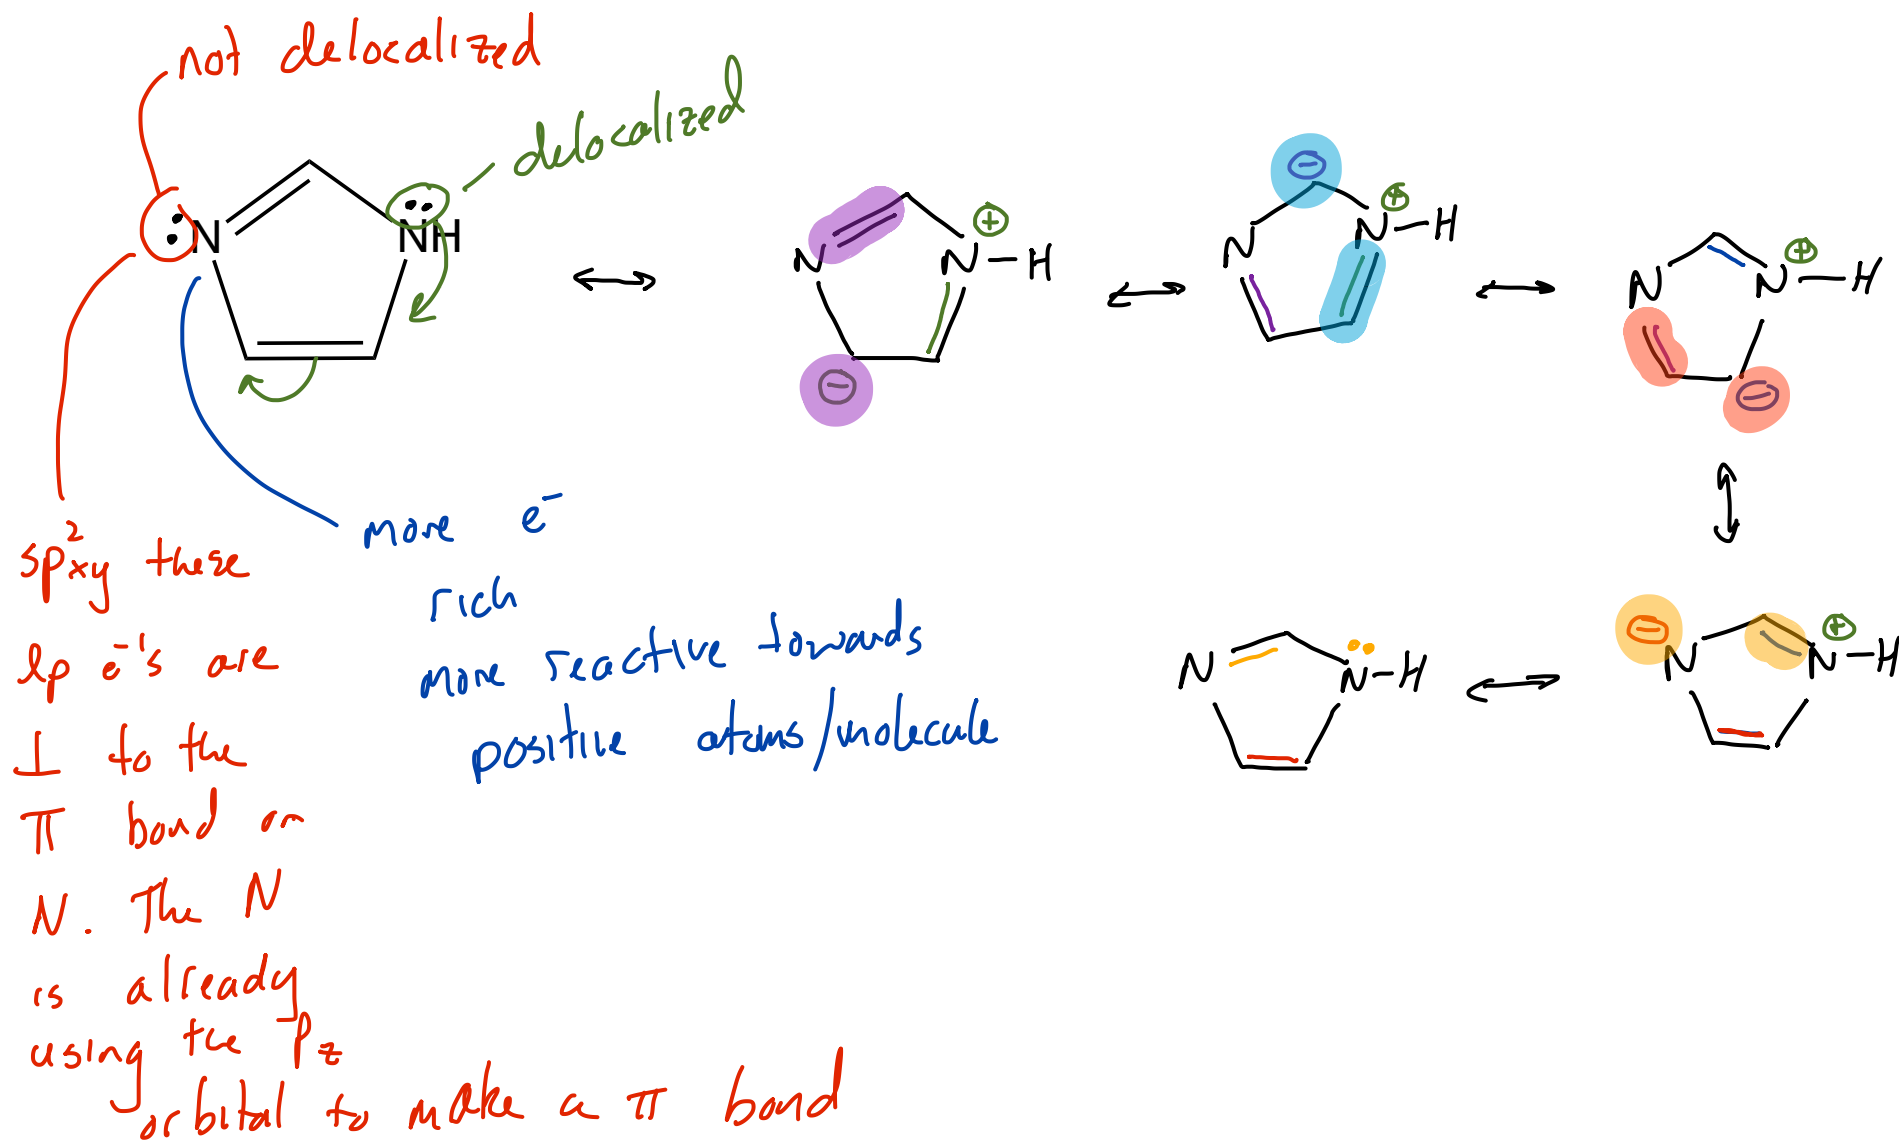 not delocalized
delocalized
N
NH
N
N
⊕
H
⊖
N
⊖
N
⊕
H
N
N
⊕
H
⊖
sp²xy these
lp e⁻'s are
⊥ to the
π bond on
N. The N
is already
using the Pz
orbital to make a π bond
more e⁻
rich
more reactive towards
positive atoms/molecule
N
N-H
⊖
N
⊕
N-H